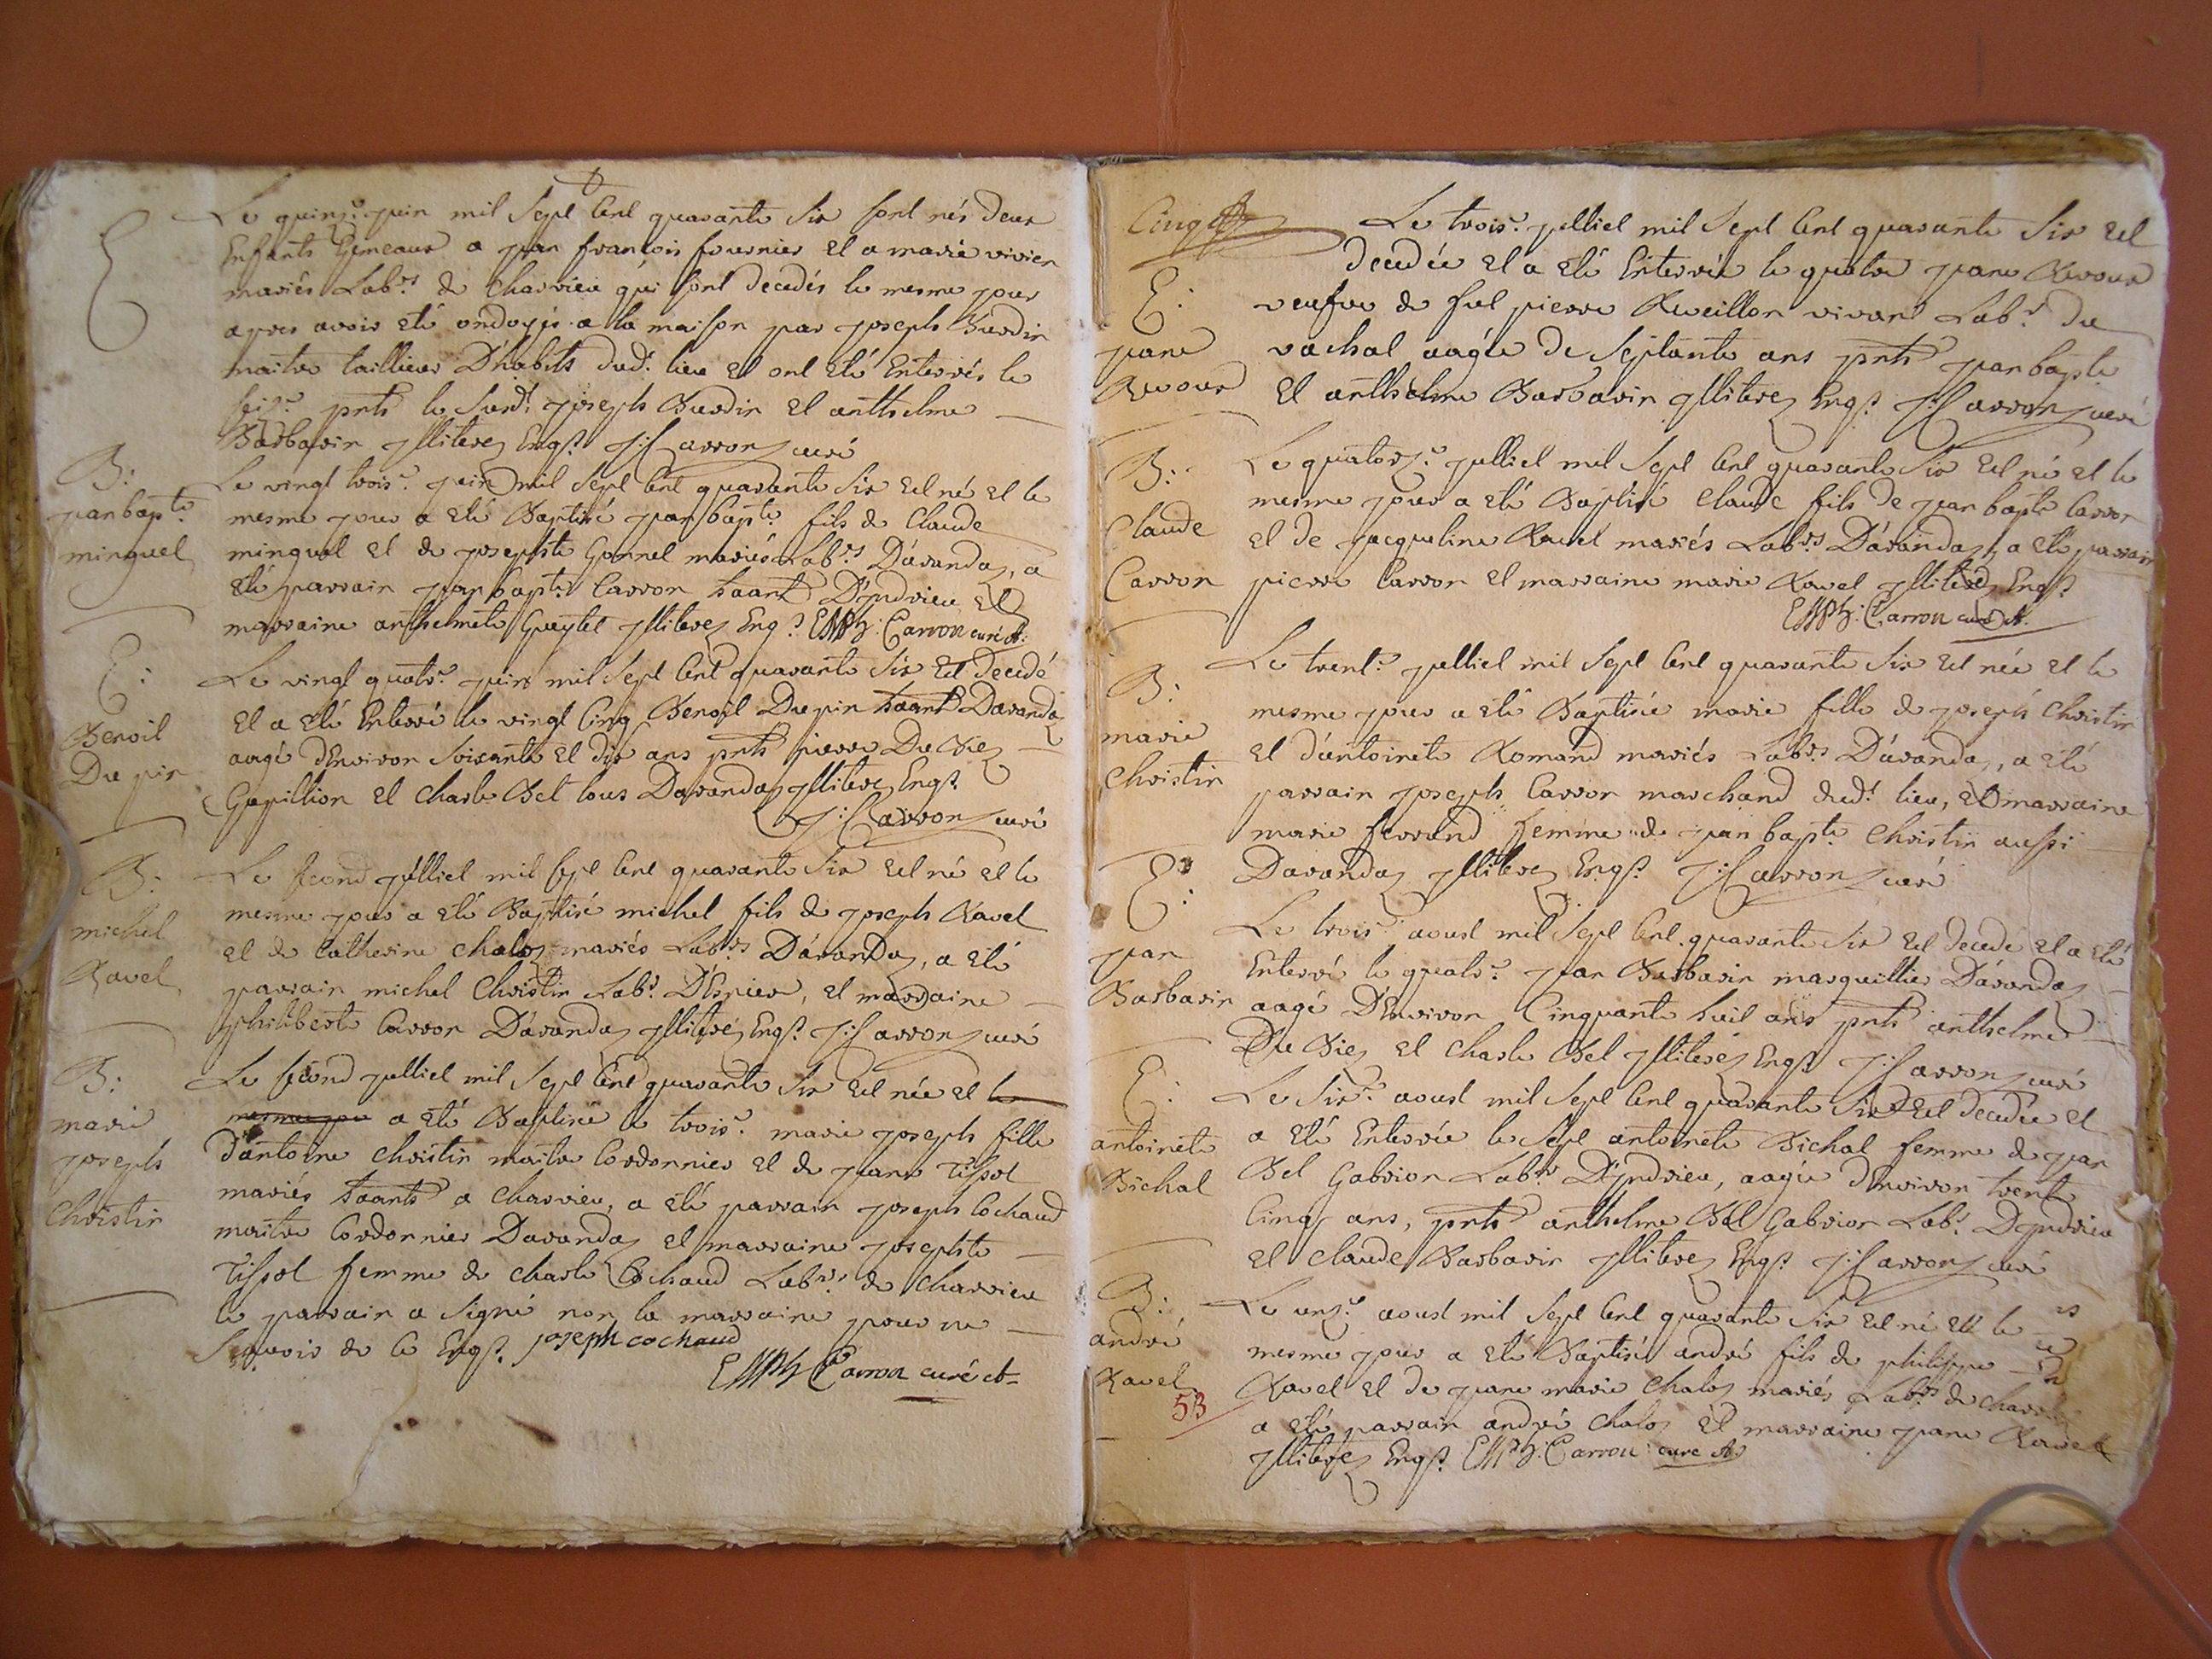 Le quinz.e juin mil Sept Cent quarante Six sont nés deux
Enfants Gemeaux a jean françois fournier et a marie vivier
mariés Lab.rs de Charvieu qui sont decedés le mesme jour
apres avoir eté ondoyés a la maison par joseph Burdin
maitre taillieur D'habits dud.t lieu et ont eté Enterrés le
seiz.e pnts le Susd.t joseph Burdin et anthelme
Barbarin jlliterez Enqs. J: Carron curé
B:
jean bapt.e
minguel
Le vingt trois.e juin mil Sept Cent quarante Six est né et le
mesme jour a eté Baptisé jean bapt.e fils de Claude
minguel et de josephte Gonnel mariés Lab.rs D'aranda, a
eté parrain jean bapt.e Carron D'jndrieu et
marraine anthelmete jlliterez Enq.s Carron curé
E:
Benoit
Dupin
Le vingt quatr.e juin mil Sept Cent quarante Six est decedé
et a eté Enterré le vingt Cinq Benoit Dupin Daranda
aagé d'Environ Soixante et dix ans pnts pierre Du
Gupillion et Charle Bel tous Daranda jlliterez Enqs.
J: Carron curé
B:
michel
Ravel
Le second jelliet mil sept Cent quarante Six est né et le
mesme jour a eté Baptisé michel fils de joseph Ravel
et de Catherine Chaloz mariés Lab.rs D'aranda, a eté
parrain michel Christin Lab.r et marraine
philiberte Carron D'aranda jlliterez Enqs. J: Carron curé
B:
marie
joseph
Christin
Le second jelliet mil Sept Cent quarante Six est née et le
mesme jour a eté Baptisée le trois.e marie joseph fille
d'antoine Christin maitre Cordonnier et de jeane Tissot
mariés a Charvieu, a eté parrain joseph Cochaud
maitre Cordonnier Daranda et marraine josephte
Tissot femme de Charle Cochaud Lab.rs de Charvieu
le parrain a Signé non la marraine pour ne
Scavoir de ce Enqs. joseph cochaud
Carron curé
Cinq
E:
jeane
Revour
Le trois.e jelliet mil Sept Cent quarante Six est
decedée et a eté Enterrée le quatre jeane Revour
veufve de fut pierre Reveillon vivant Lab.r du
vachat aagée de Septante ans pnts jean bapte
et anthelme Barbarin jlliterez Enqs. J: Carron curé
B:
Claude
Carron
Le quatorz.e jelliet mil Sept Cent quarante Six est né et le
mesme jour a eté Baptisé Claude fils de jean bapte Carron
et de jacqueline Ravel mariés Lab.rs D'aranda, a eté parrain
pierre Carron et marraine marie Ravel jlliterez Enqs.
Carron curé
B:
marie
Christin
Le trent.e jelliet mil Sept Cent quarante Six est née et le
mesme jour a eté Baptisée marie fille de joseph Christin
et d'antoinete Romand mariés Lab.rs D'aranda, a eté
parrain joseph Carron marchand dud.t lieu, et marraine
marie ferrand femme de jean bapt.e Christin aussi
Daranda jlliterez Enqs. J: Carron curé
E:
jean
Barbarin
Le trois aoust mil Sept Cent quarante Six est decedé et a eté
Enterré le quatr.e jean Barbarin marguillier D'aranda
aagé D'Environ Cinquante huit ans pnts anthelme
Du et Charle Bel jlliterez Enqs. J: Carron curé
E:
antoinete
Bichal
Le Six.e aoust mil Sept Cent quarante Six est decedée et
a eté Enterrée le Sept antoinete Bichal femme de jean
Bel Gabrion Lab.rs D'jndrieu, aagée d'Environ trente
Cinq ans, pnts anthelme Bel Gabrion Lab.r D'jndrieu
et Claude Barbarin jlliterez Enqs. J: Carron curé
B:
andré
Ravel
Le unz.e aoust mil Sept Cent quarante Six est né et le
mesme jour a eté Baptisé andré fils de philippe
Ravel et de jeane marie Chaloz mariés Lab.rs de
a eté parrain andré Chaloz et marraine jeane Ravel
jlliterez Enqs. Carron curé
53